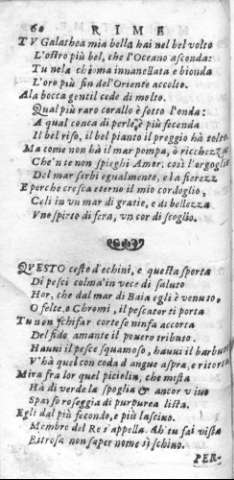 68 RIME
TV Galathea mia bella hai nel bel volto
L'ostro più bel, che l'Oceano asconda:
Tu nela chioma innanellata e bionda
L'oro più fin del'Oriente accolto.
Ala bocca gentil cede di molto.
Qual più raro corallo è sotto l'onda:
A qual conca di perle è più feconda
Il bel riso, il bel pianto il preggio hà tolto
Ma come non hà il mar pompa, ò ricchezza
Che'n te non spieghi Amor, così l'orgoglio
Del mar serbi egualmente, e la fierezz
E perche cresca eterno il mio cordoglio,
Celi in vn mar di gratie, e di bellezza
Vno spirto di fera, vn cor di scoglio.
QVESTO cesto d'echini, e questa sporta
Di pesci colma'in vece di saluto
Hor, che dal mar di Baia egli è venuto,
O felce, o Chromi, il pescator ti porta
Tu non schifar cortese ninfa accorta
Del fido amante il pouero tributo.
Hauui il pesce squamoso, hauui il barbuto
V'hà quel con coda d'angue aspra, e ritorta
Mira fra lor quel picciolin, che mista
Hà di verde la spoglia & ancor viuo
Sparso roseggia di purpurea lista.
Egli dal più fecondo, e più lasciuo.
Membro del Re s'appella. Ah' tu fai vista
Ritrosa non saper nome sì schiuo.
PER-